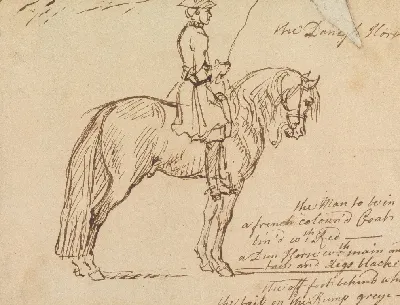 the Danish Hors
the Man to be in
a french colour'd Coat
lin'd wth Red
a Dun Horse wth main and
tail and Legs black
the off foot behind wh
the tail on the Rump grey